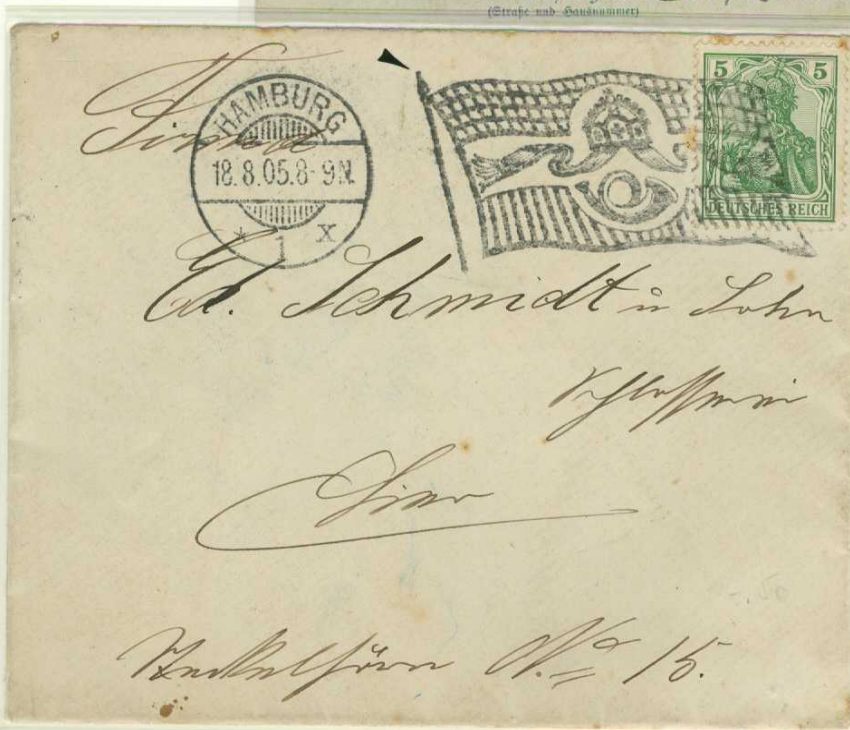 (Straße und Hausnummer)
HAMBURG
18.8.05.8-9N.
* 1 x
5 5
DEUTSCHES REICH
Firma
Ed. Schmidt u Sohn
Schlosserei
Hier
No 15.